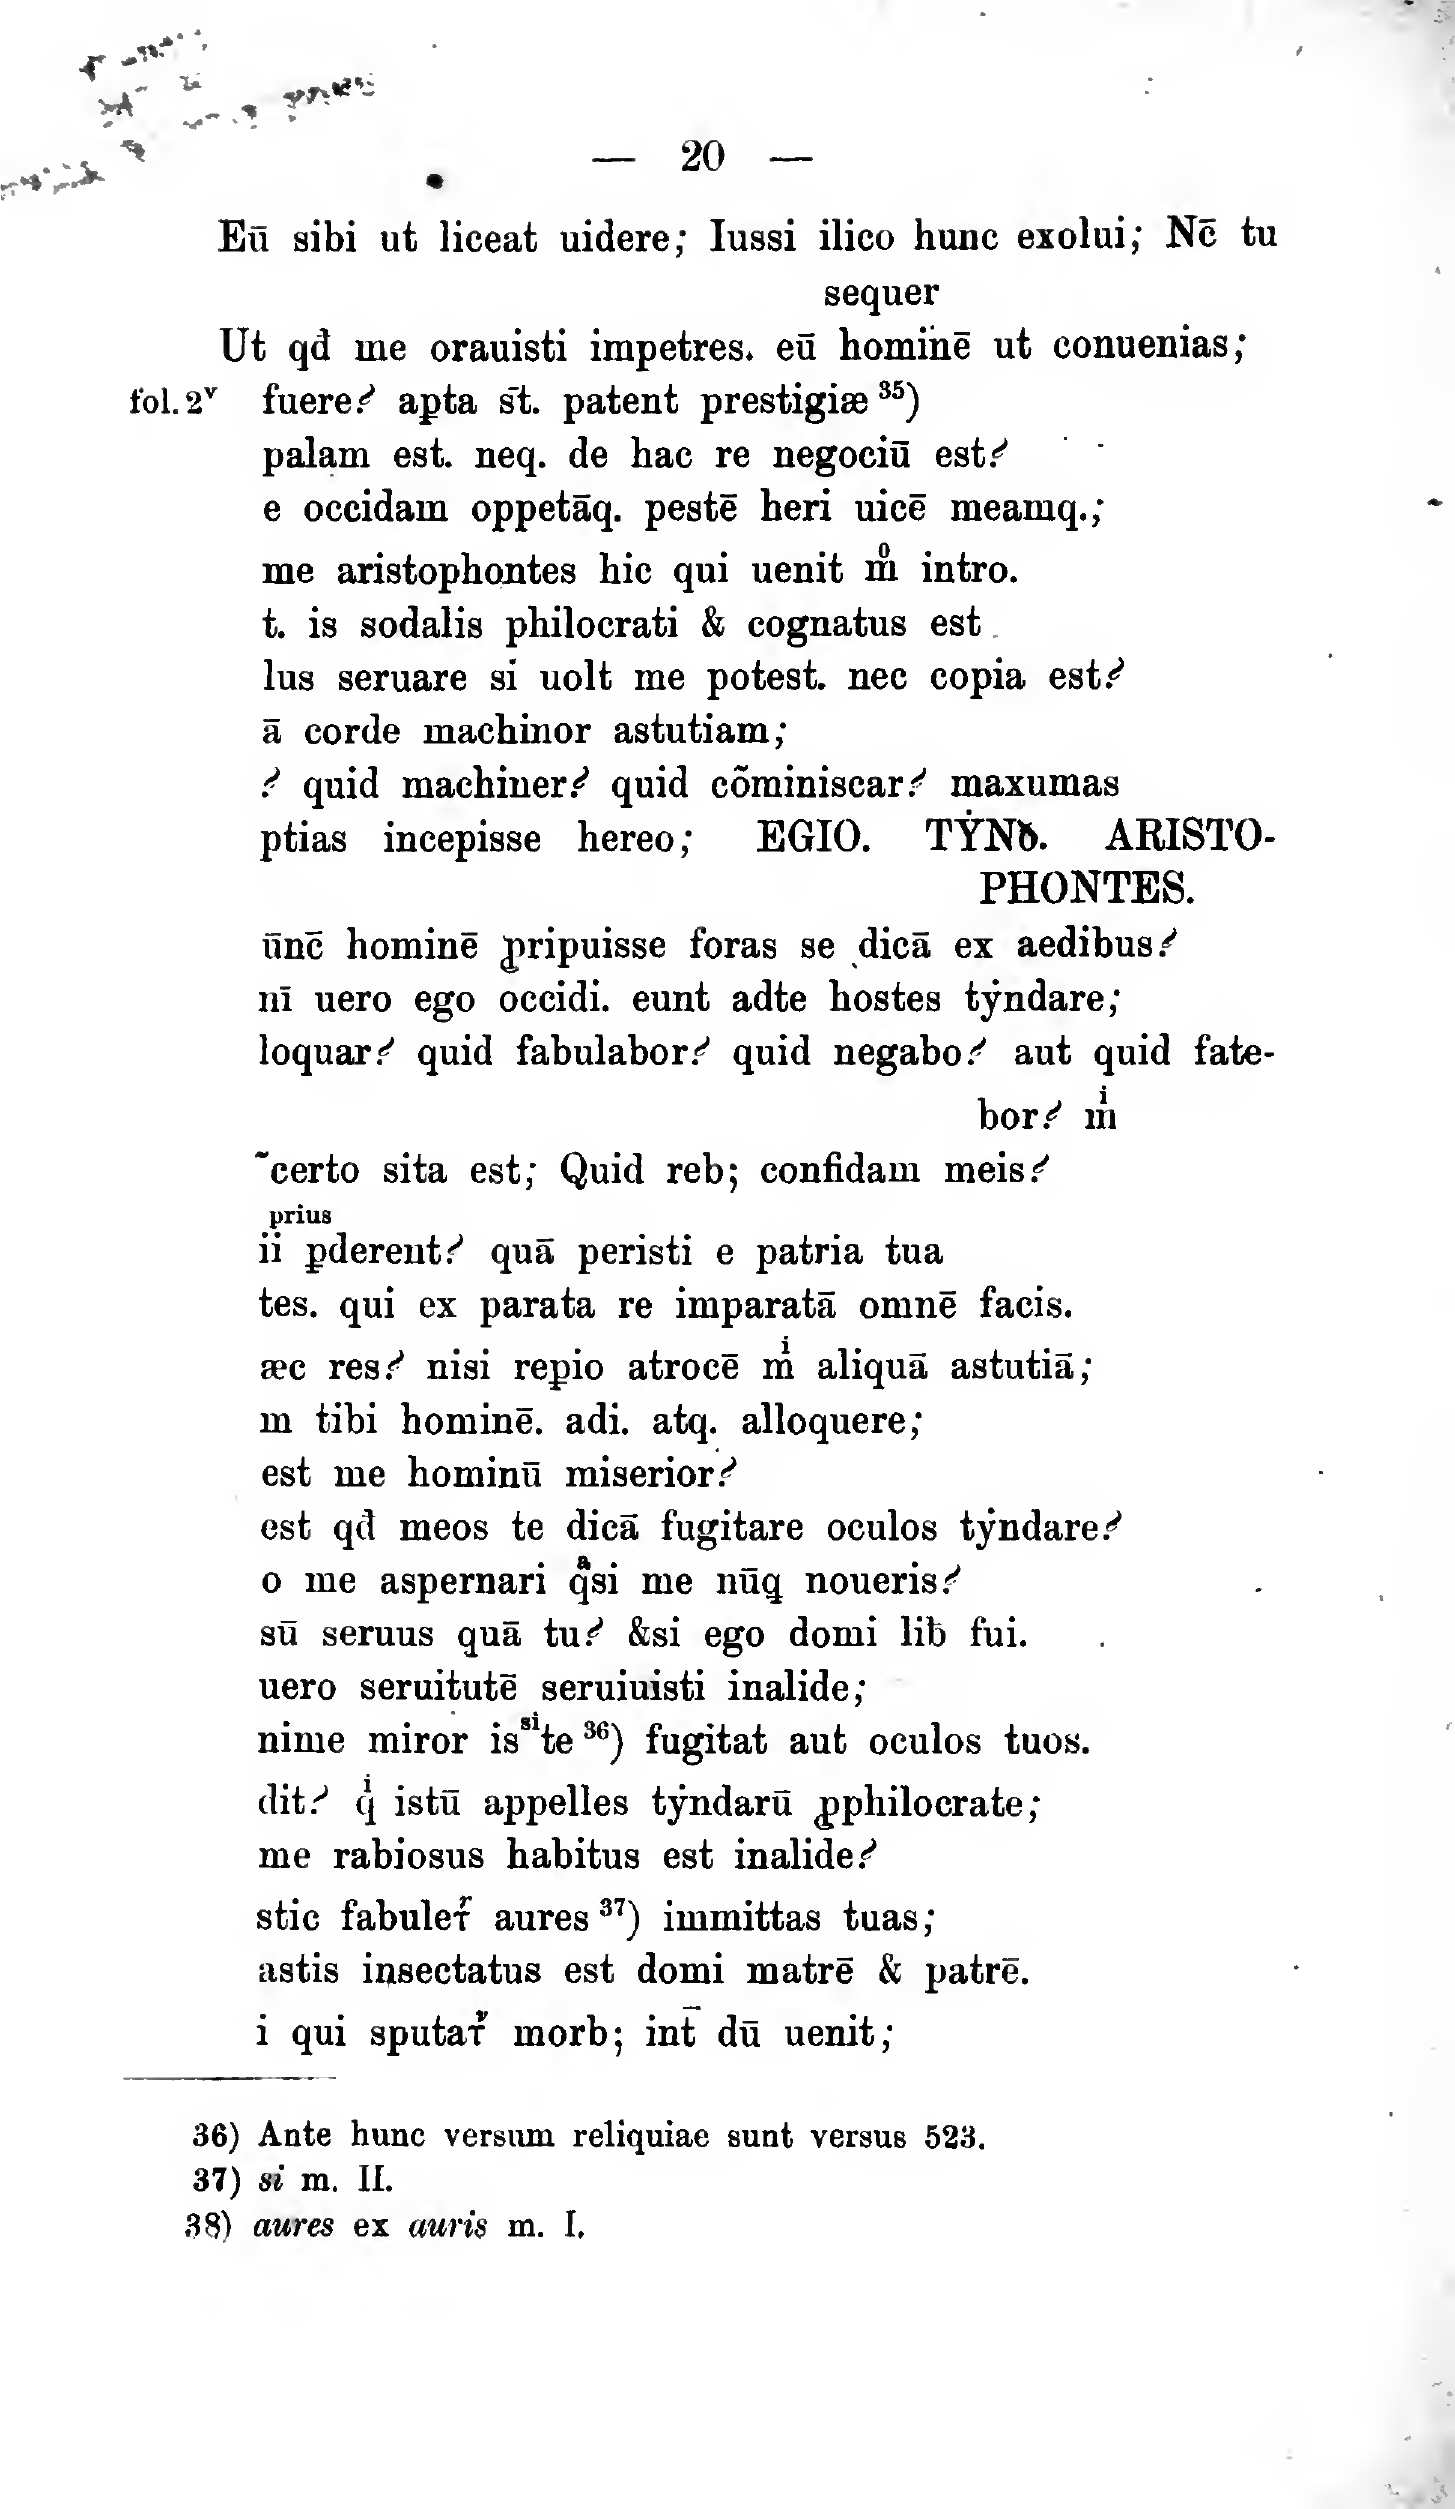 — 20 —
Eū sibi ut liceat uidere; Iussi ilico hunc exolui; Nc̄ tu
sequer
Ut qđ me orauisti impetres. eū hominē ut conuenias;
fol. 2ᵛ fuere? apta s̄t. patent prestigiæ ³⁵)
palam est. neq. de hac re negociū est?
e occidam oppetāq. pestē heri uicē meamq.;
me aristophontes hic qui uenit mͦ intro.
t. is sodalis philocrati & cognatus est
lus seruare si uolt me potest. nec copia est?
ā corde machinor astutiam;
? quid machiner? quid cōminiscar? maxumas
ptias incepisse hereo; EGIO. TẎNƀ. ARISTO-
PHONTES.
ūnc̄ hominē ꝓripuisse foras se dicā ex aedibus?
nī uero ego occidi. eunt adte hostes tẏndare;
loquar? quid fabulabor? quid negabo? aut quid fate-
bor? mͥ
˜certo sita est; Quid reb; confidam meis?
prius
ii ꝑderent? quā peristi e patria tua
tes. qui ex parata re imparatā omnē facis.
æc res? nisi reꝑio atrocē mͥ aliquā astutiā;
m tibi hominē. adi. atq. alloquere;
est me hominū miserior?
est qđ meos te dicā fugitare oculos tẏndare?
o me aspernari qͣsi me nūq noueris?
sū seruus quā tu? &si ego domi liƀ fui.
uero seruitutē seruiuisti inalide;
nime miror isˢⁱte ³⁶) fugitat aut oculos tuos.
dit? qͥ istū appelles tẏndarū ꝓphilocrate;
me rabiosus habitus est inalide?
stic fabuletͬ aures ³⁷) immittas tuas;
astis insectatus est domi matrē & patrē.
i qui sputatͬ morb; int̄ dū uenit;
36) Ante hunc versum reliquiae sunt versus 523.
37) si m. II.
38) aures ex auris m. I.